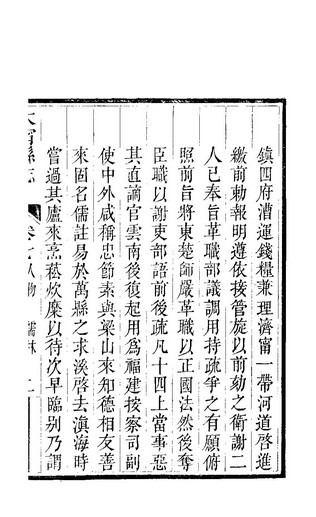 鎮四府漕運錢糧兼理濟甯一帶河道啓進
繳前勅報明遵依接管旋以前劾之衛謝二
人已奉旨革職部議調用持疏爭之有願俯
照前旨將東楚師嚴革職以正國法然後奪
臣職以謝吏部語前後疏凡十四上當事惡
其直謫官雲南後復起用爲福建按察司副
使中外咸稱忠節素與梁山來知德相友善
來固名儒註易於萬縣之求溪啓去滇海時
嘗過其廬來烹菘炊糜以待次早臨别乃謂
大甯縣志
卷七人物 儒林 二